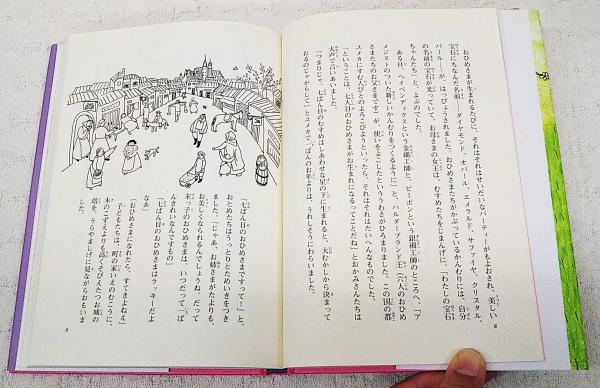 おひめさまが生まれるたびに、それはそれはせいだいなパーティーがもよおされ、美しい
宝石にちなんだ名前――ダイヤモンド、オパール、エメラルド、サファイヤ、クリスタル、
パール――が、はっぴょうされました。おひめさまたちがかぶっているかんむりには、自分
の名前の宝石が光っていて、お母さまの女王は、むすめたちをじまんげに、「わたしの宝石
ちゃんたち」と、よぶのでした。
ある日、ヘイベンディクスという金細工師と、ビーボンという銀細工師のところへ、「ア
メジストのついた新しいかんむりをつくるように」と、
さまたちのお父さまです）が、使いをよこしたといううわさがひろまりました。この国の都
ユメカにすむ人びとのよろこびようといったら、それはそれはたいへんなものでした。
「ということは、七人目のおひめさまがお生まれになるってことだね」とおかみさんたちは
大声で言いあいました。
「つまりじゃ、七ばん目のむすめはしあわせな星の下に生まれると、大むかしから決まって
おるのじゃからして」とユメカで一ばんのお年よりは、うれしそうにわらいました。
8
「七ばん目のおひめさまですって！」と、
おとめたちはうっとりとためいきをつき
ました。「じゃあ、お姉さまがたよりも、
お美しくなられるんでしょうね。だって
末っ子のおひめさまは、いつだって一ば
んきれいなんですもの」
「七ばん目のおひめさまはラッキーだよ
なあ」
「おひめさまになれたら、すてきよねえ」
子どもたちは、町の家いえのむこうに、
木のこずえよりも高くそびえたつお城の
塔を、うらやましげに見ながらおもいま
した。
9